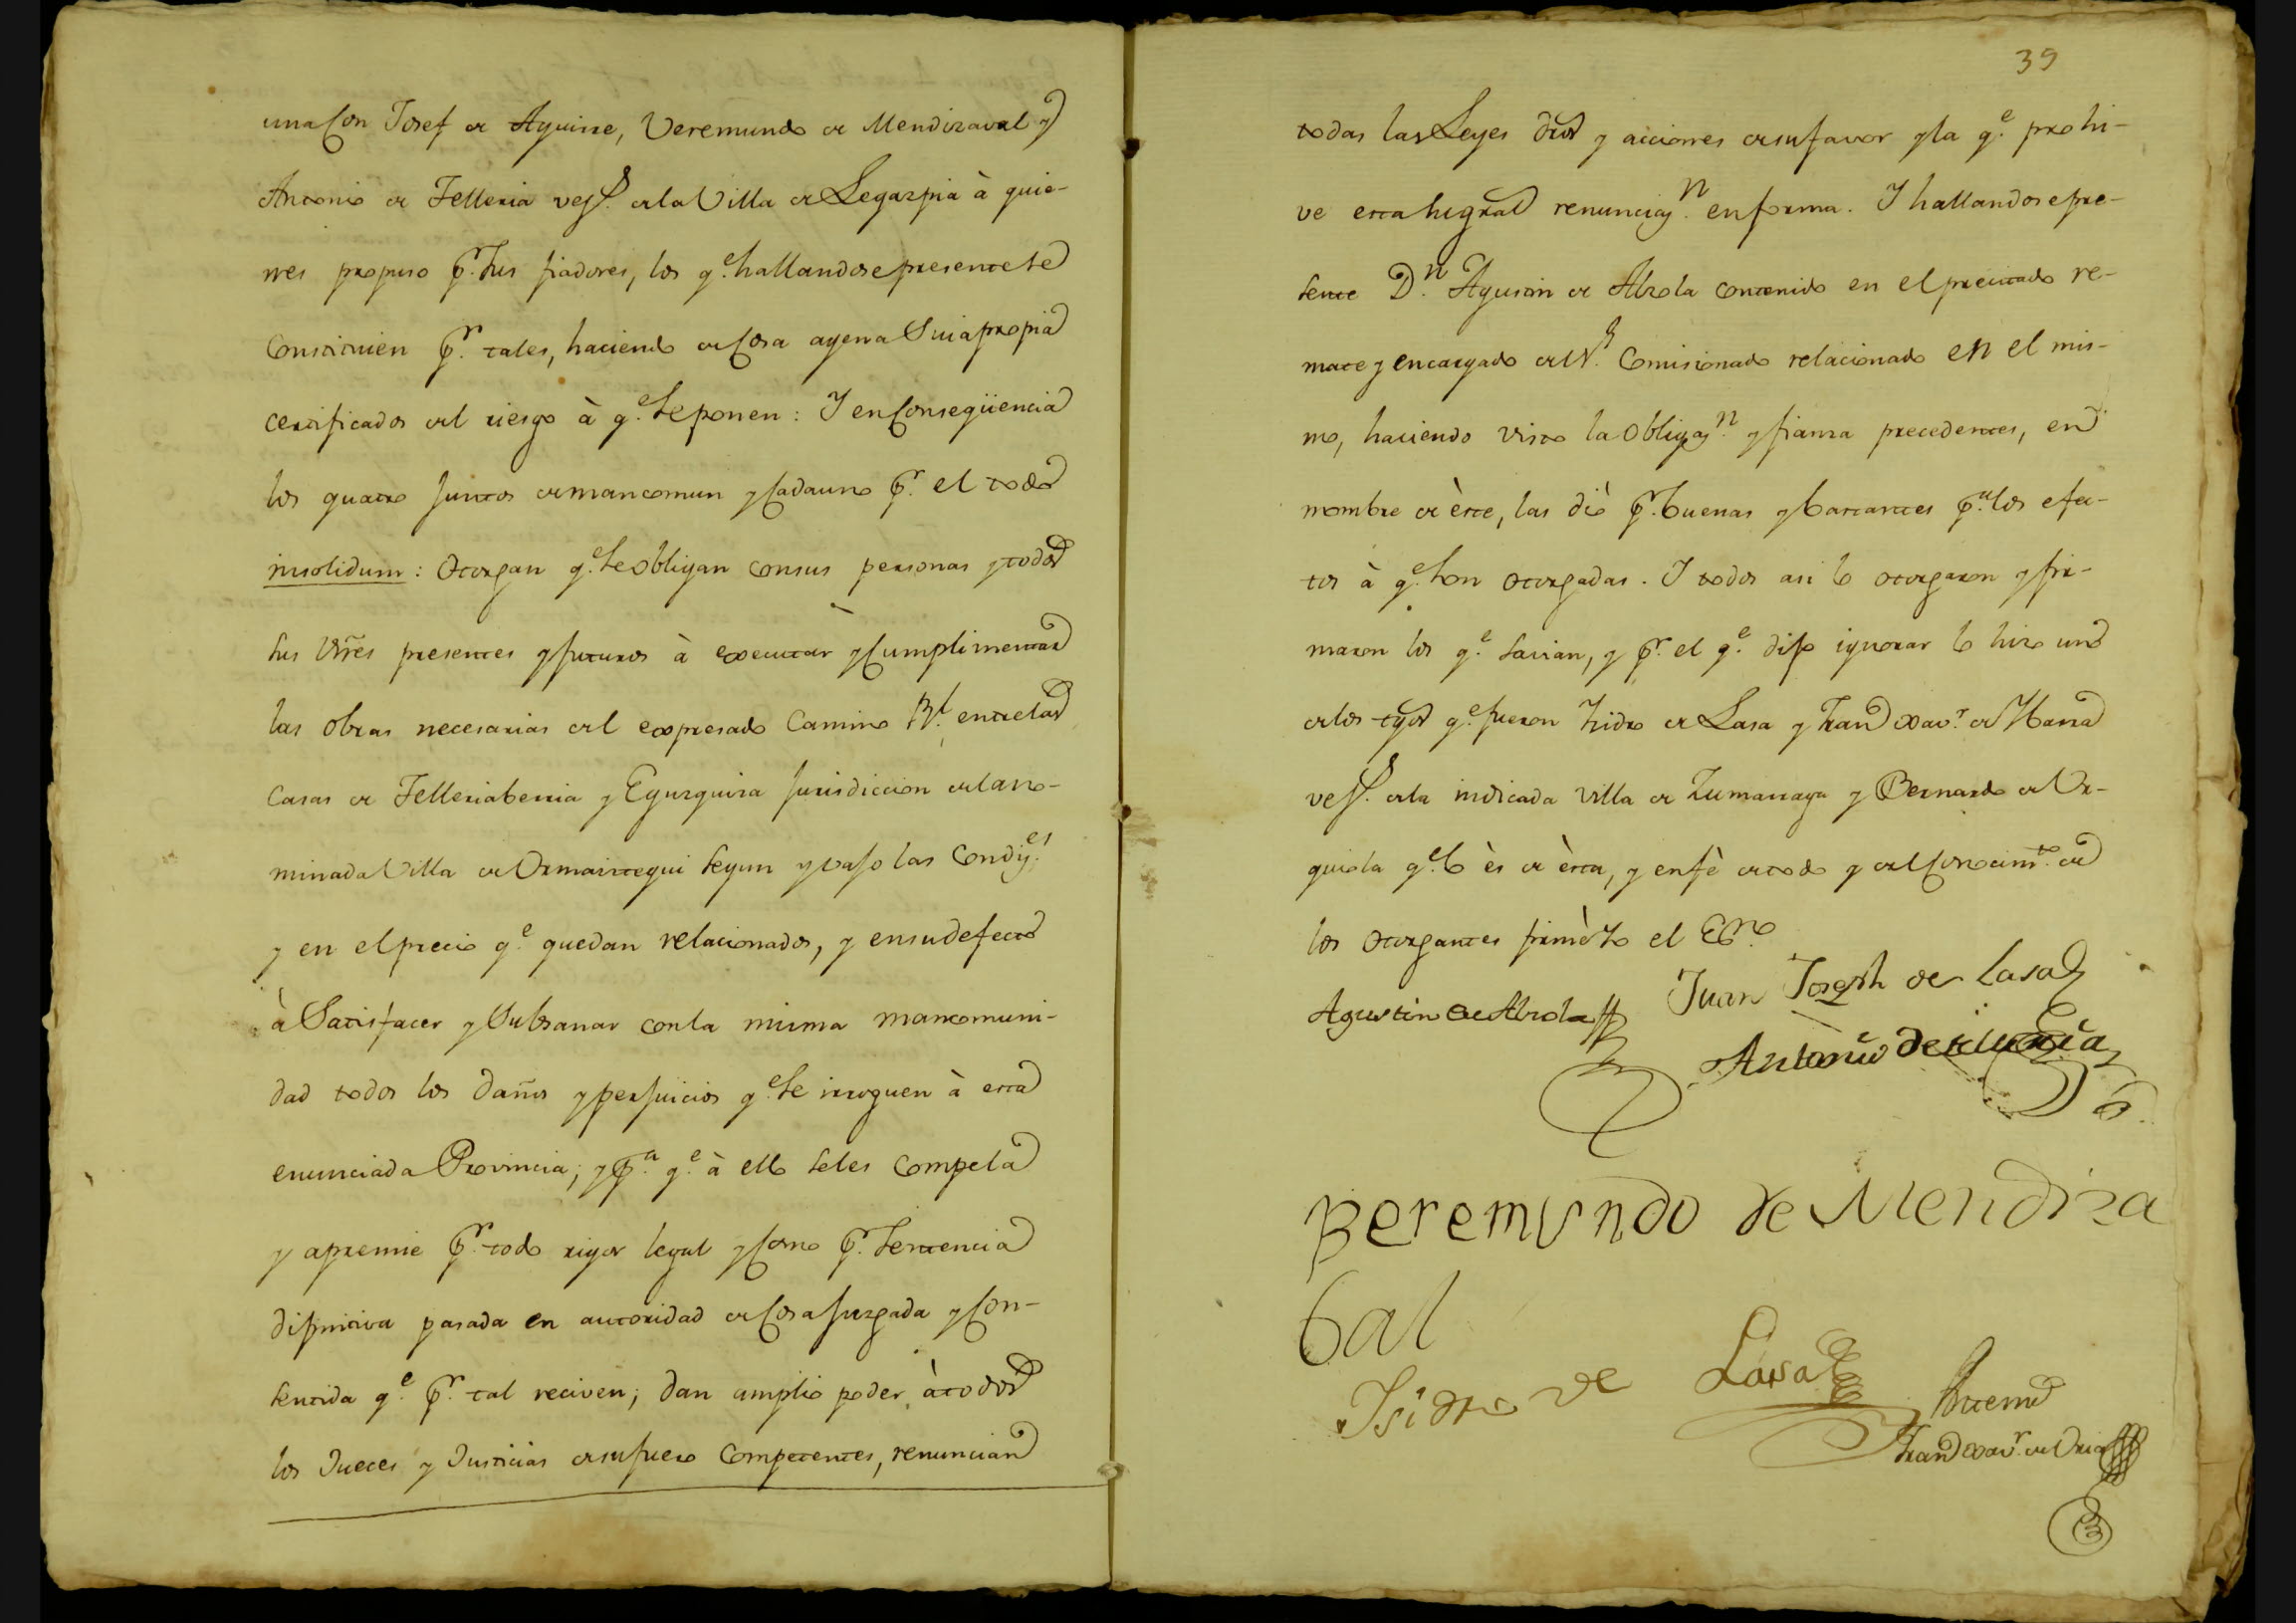 una con Josef de Aguirre, Veremundo de Mendizaval y
Antonio de Telleria veçs. de la Villa de Legazpia à quie-
nes propuso pr. sus fiadores, los qe. hallandose presentes se
constituien pr. tales, haciendo de cosa agena Suia propia
certificados del riesgo à qe. se ponen: Y en consegüencia
los quatro juntos de mancomun y cada uno pr. el todo
insolidum: Otorgan qe. se obligan con sus personas y todos
sus vñes presentes y futuros à executar y cumplimentar
las obras necesarias del expresado Camino Rl. entre las
Casas de Telleriaberria y Egurquiza jurisdiccion de la no-
minada Villa de Ormaiztegui segun y vajo las Condiçes.
y en el precio qe. quedan relacionados, y en su defecto
à Satisfacer y Subsanar con la misma mancomuni-
dad todos los daños y perjuicios qe. se irroguen à esta
enunciada Provincia; y pa. qe. à ello se les compela
y apremie pr. todo rigor legal y como pr. Sentencia
difinitiva pasada en autoridad de cosa juzgada y con-
sentida qe. pr. tal reciven; dan amplio poder à todos
los Jueces y Justicias de su fuero Competentes, renuncian
39
todas las Leyes dros y acciones de su favor y la qe. prohi-
ve esta gral renunciaçn. en forma. Y hallandose pre-
sente Dn. Agustin de Abrola contenido en el precitado re-
mate y encargado del Sr. Comisionado relacionado en el mis-
mo, haciendo visto la Obligaçn. y fianza precedentes, en
nombre de èste, las diò pr. buenas y bastantes pa. los efec-
tos à qe. son otorgadas. Y todos asi lo otorgaron y fir-
maron los qe. savian, y pr. el qe. dijo ignorar lo hizo uno
de los tgos qe. fueron Isidro de Lasa y Fran Xavr. de
veçs. de la indicada Villa de Zumarraga y Bernardo de Ur-
quiola qe. lo ès de èsta, y en fè de todo y del conocimto. de
los Otorgantes firmè Yo el Esno.
Agustin de Abrola
Juan Joseph de Lasa
Antonio de telleria
Beremundo de Mendiza
bal
Isidro de Lasa
Ante mi
Fran Xavr. de Oria